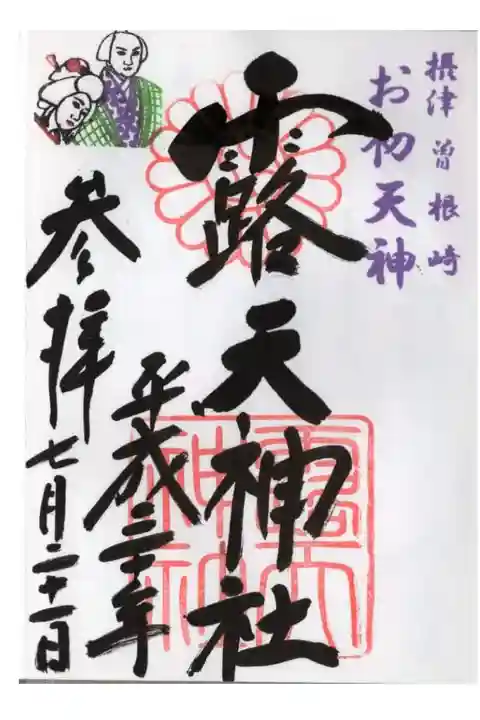 摂津 曽根崎
お初天神
露天神社
平成三十年
七月二十一日
参拝
露天
神社